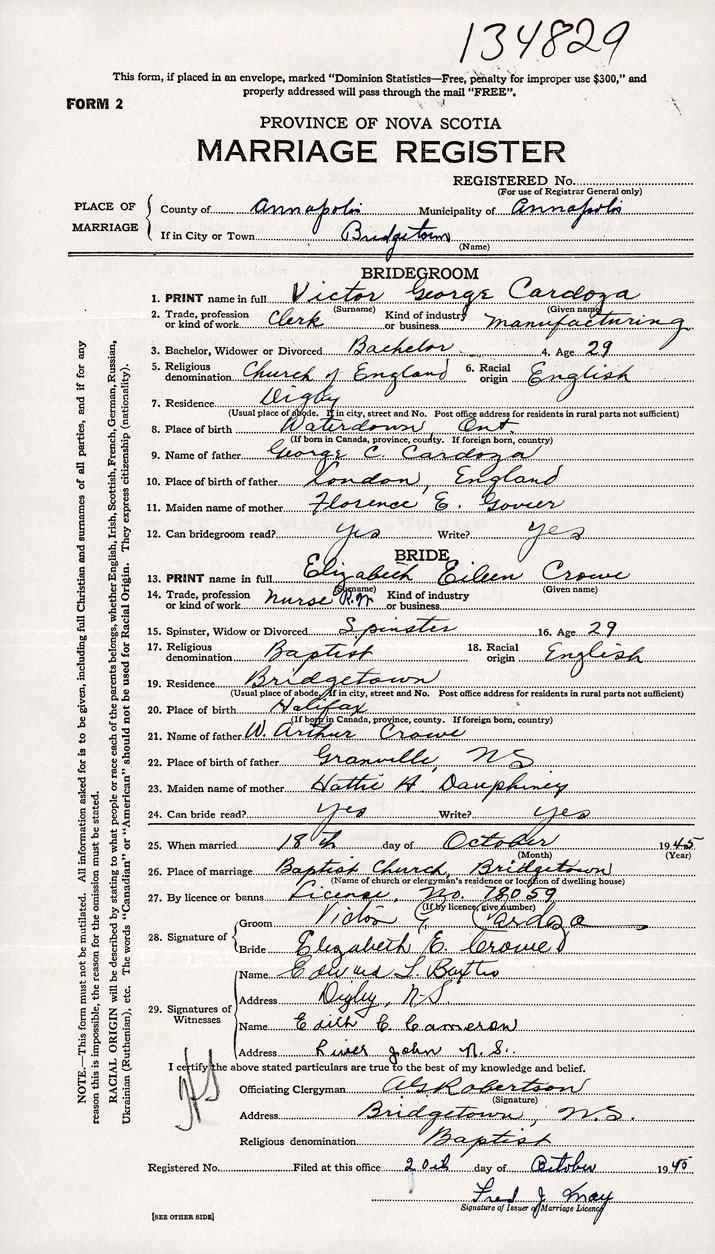 134829
This form, if placed in an envelope, marked "Dominion Statistics—Free, penalty for improper use $300," and
properly addressed will pass through the mail "FREE".
FORM 2
PROVINCE OF NOVA SCOTIA
MARRIAGE REGISTER
REGISTERED No.
(For use of Registrar General only)
PLACE OF MARRIAGE
County of Annapolis Municipality of Annapolis
If in City or Town Bridgetown
(Name)
BRIDEGROOM
1. PRINT name in full Victor George Cardoza
(Surname) (Given name)
2. Trade, profession or kind of work Clerk Kind of industry or business manufacturing
3. Bachelor, Widower or Divorced Bachelor 4. Age 29
5. Religious denomination Church of England 6. Racial origin English
7. Residence Digby
(Usual place of abode. If in city, street and No. Post office address for residents in rural parts not sufficient)
8. Place of birth Waterdown, Ont.
(If born in Canada, province, county. If foreign born, country)
9. Name of father George C. Cardoza
10. Place of birth of father London, England
11. Maiden name of mother Florence E. Govier
12. Can bridegroom read? yes Write? yes
BRIDE
13. PRINT name in full Elizabeth Eileen Crowe
(Surname) (Given name)
14. Trade, profession or kind of work Nurse R.N. Kind of industry or business
15. Spinster, Widow or Divorced Spinster 16. Age 29
17. Religious denomination Baptist 18. Racial origin English
19. Residence Bridgetown
(Usual place of abode. If in city, street and No. Post office address for residents in rural parts not sufficient)
20. Place of birth Halifax
(If born in Canada, province, county. If foreign born, country)
21. Name of father W. Arthur Crowe
22. Place of birth of father Granville, NS
23. Maiden name of mother Hattie H. Dauphiney
24. Can bride read? yes Write? yes
25. When married 18th day of October 1945
(Month) (Year)
26. Place of marriage Baptist Church, Bridgetown
(Name of church or clergyman's residence or location of dwelling house)
27. By licence or banns License, No. 78059
(If by licence, give number)
28. Signature of
Groom Victor G. Cardoza
Bride Elizabeth E. Crowe
29. Signatures of Witnesses
Name Edward L.
Address Digby, N.S.
Name Edith C Cameron
Address River John N.S.
I certify the above stated particulars are true to the best of my knowledge and belief.
Officiating Clergyman AG Robertson
(Signature)
Address Bridgetown, N.S.
Religious denomination Baptist
Registered No. Filed at this office 20th day of October 1945
Fred J. May
Signature of Issuer of Marriage Licence
[SEE OTHER SIDE]
NOTE.—This form must not be mutilated. All information asked for is to be given, including full Christian and surnames of all parties, and if for any
reason this is impossible, the reason for the omission must be stated.
RACIAL ORIGIN will be described by stating to what people or race each of the parents belongs, whether English, Irish, Scottish, French, German, Russian,
Ukrainian (Ruthenian), etc. The words "Canadian" or "American" should not be used for Racial Origin. They express citizenship (nationality).